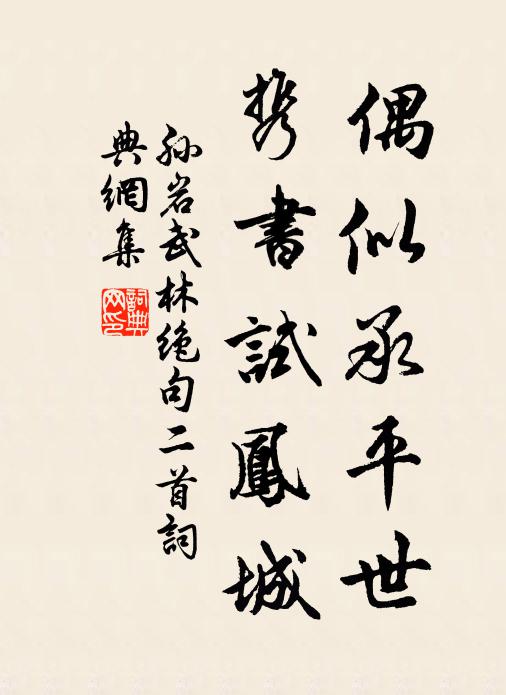 偶似承平世
携書試鳳城
孫岩武林絶句二首詞
典網集
詞典
网印